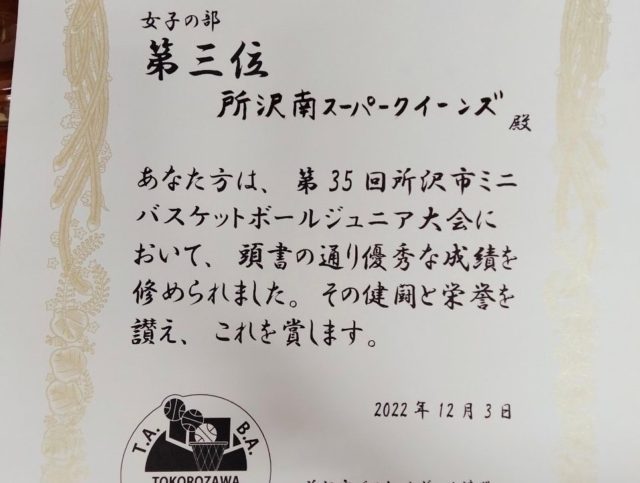 女子の部
第三位
所沢南スーパークイーンズ 殿
あなた方は、第35回所沢市ミニ
バスケットボールジュニア大会に
おいて、頭書の通り優秀な成績を
修められました。その健闘と栄誉を
讃え、これを賞します。
2022年12月3日
T.A. B.A.
TOKOROZAWA